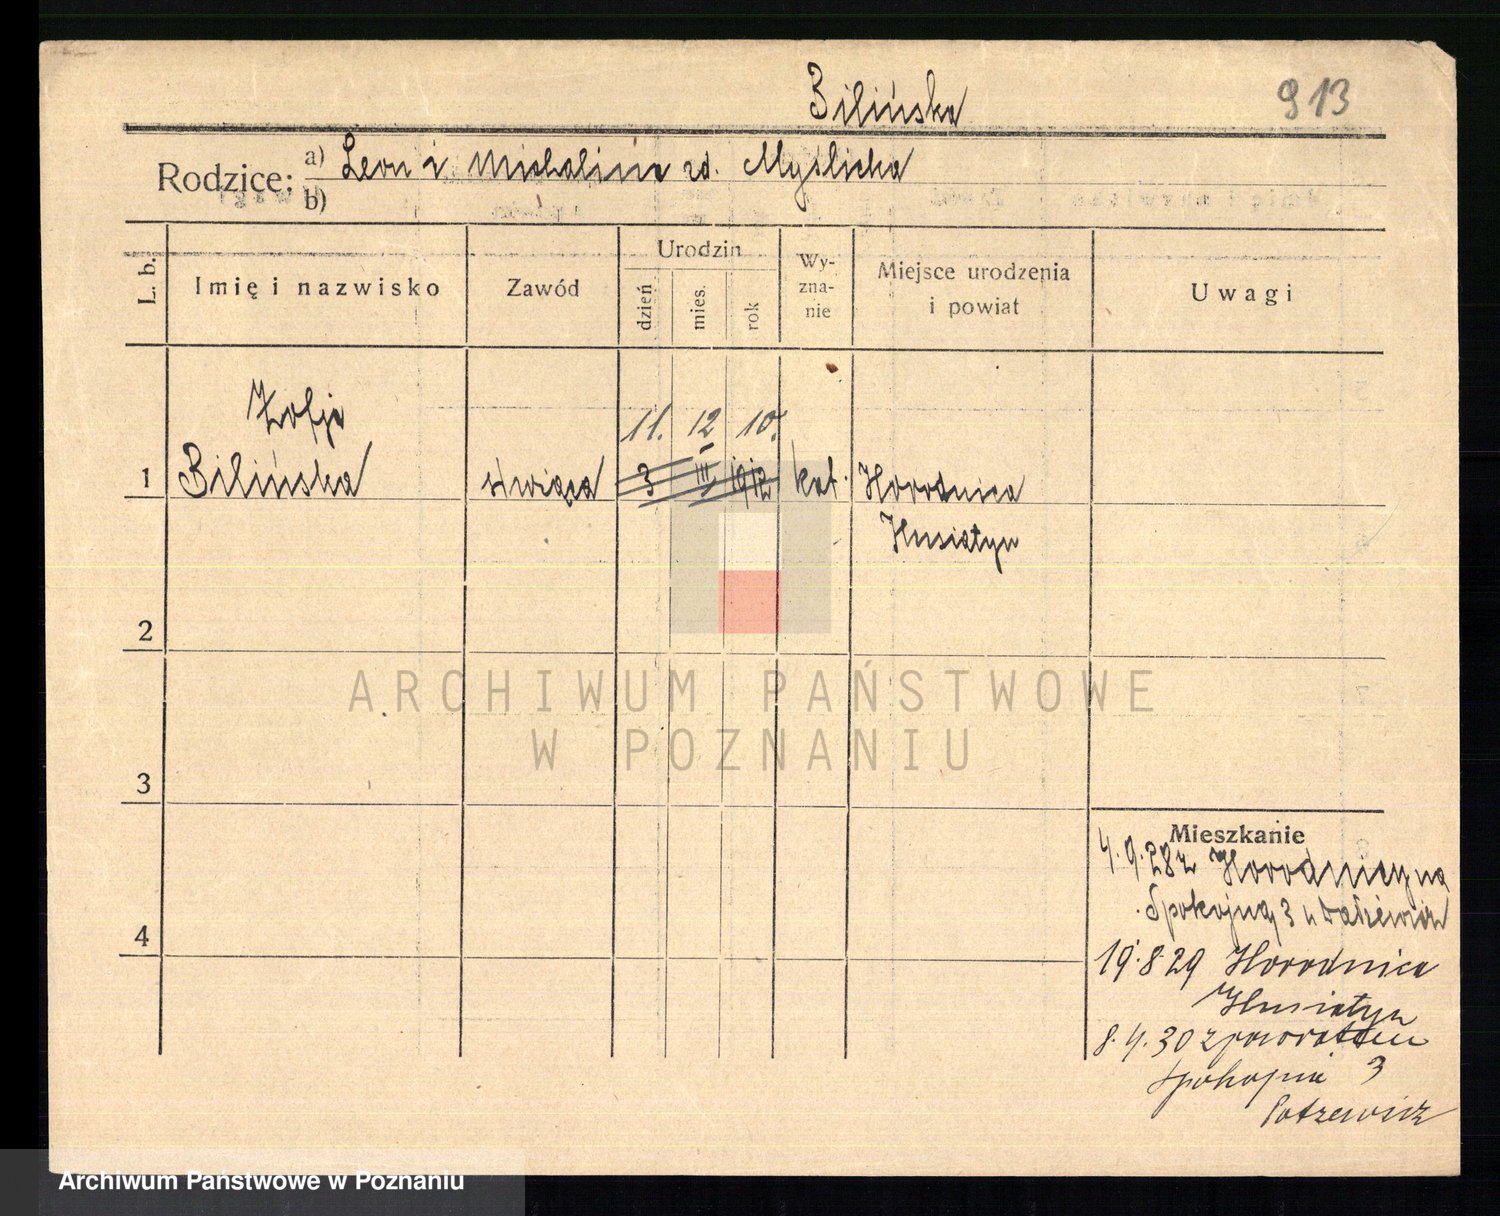 Bilińska 913
Rodzice: a) Leon i Michalina zd. Myślicka
b)
L. b. Imię i nazwisko Zawód Urodzin dzień mies. rok Wy-zna-nie Miejsce urodzenia i powiat Uwagi
Zofja
11. 12 10.
1 Bilińska służąca 3 III 1912 kat. Horodnica
Husiatyn
2
ARCHIWUM PAŃSTWOWE
W POZNANIU
3
Mieszkanie
4.9.28 z Horodnicy na
Spokojną 3 u
4
19.8.29 Horodnica
Husiatyn
8.4.30 z powrotem
Spokojna 3
Archiwum Państwowe w Poznaniu